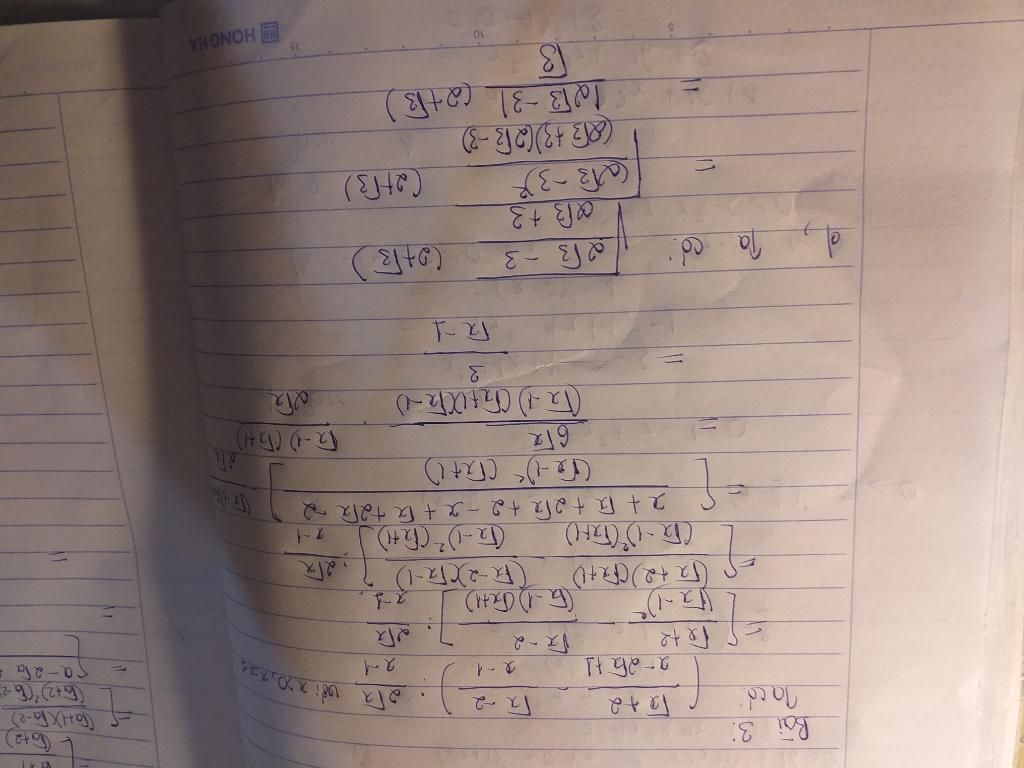 Bài 3:
Ta có: ( (√x + 2)/(x - 2√x + 1) - (√x - 2)/(x - 1) ) : 2√x/(x - 1) với x > 0, x ≠ 1
= [ (√x + 2)/(√x - 1)² - (√x - 2)/((√x - 1)(√x + 1)) ] : 2√x/(x - 1)
= [ (√x + 2)(√x + 1)/((√x - 1)²(√x + 1)) - (√x - 2)(√x - 1)/((√x - 1)²(√x + 1)) ] : 2√x/(x - 1)
= [ (x + √x + 2√x + 2 - x + √x + 2√x - 2)/((√x - 1)²(√x + 1)) ]
= 6√x/((√x - 1)(√x + 1)(√x - 1)) . (√x - 1)(√x + 1)/2√x
= 3/(√x - 1)
d, Ta có: √((2√3 - 3)/(2√3 + 3)) (2 + √3)
= √((2√3 - 3)²/((2√3 + 3)(2√3 - 3))) (2 + √3)
= |2√3 - 3|/√3 (2 + √3)
HONG HA